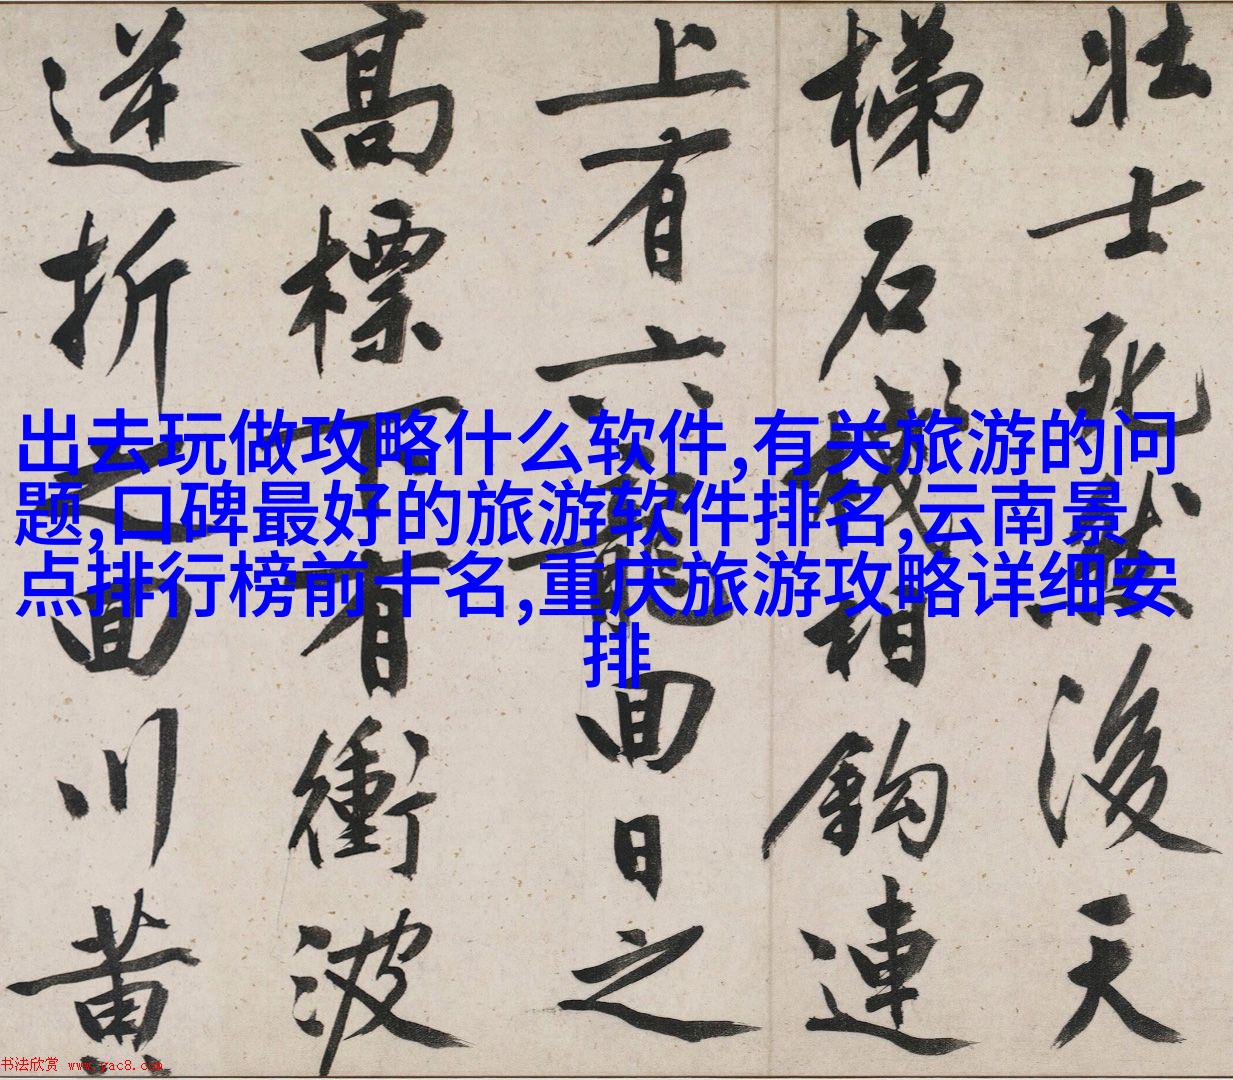 壮士死然後天
梯石棧相鈎連
上有六龍回日之
高標下有衝波
逆折之回川黄
出去玩做攻略什么软件,有关旅游的问
题,口碑最好的旅游软件排名,云南景
点排行榜前十名,重庆旅游攻略详细安
排
书法欣赏 www.yac8.com